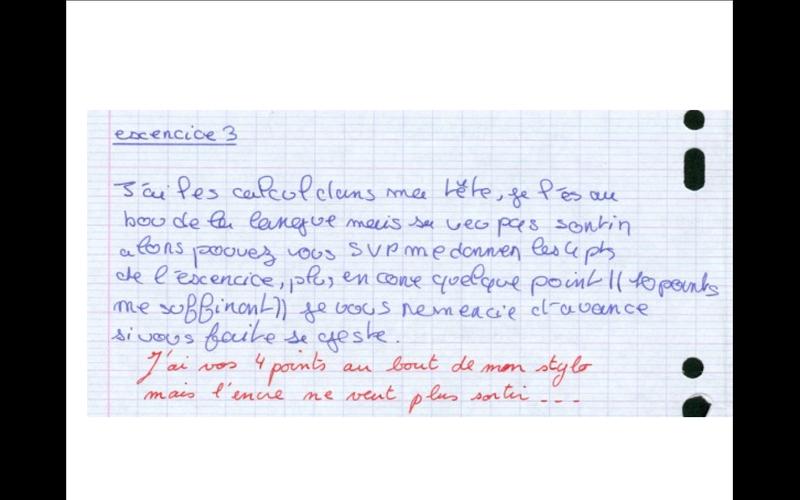 excercice 3
J'ai les calcul dans ma tête, je l'es au
bou de la langue mais sa veo pas sortir
alors pouvez vous SVP me donner les 4 pts
de l'excercice, plus encore quelque point (( 10 points
me suffiront )) je vous remercie d'avance
si vous faite se geste.
J'ai vos 4 points au bout de mon stylo
mais l'encre ne veut plus sortir ...